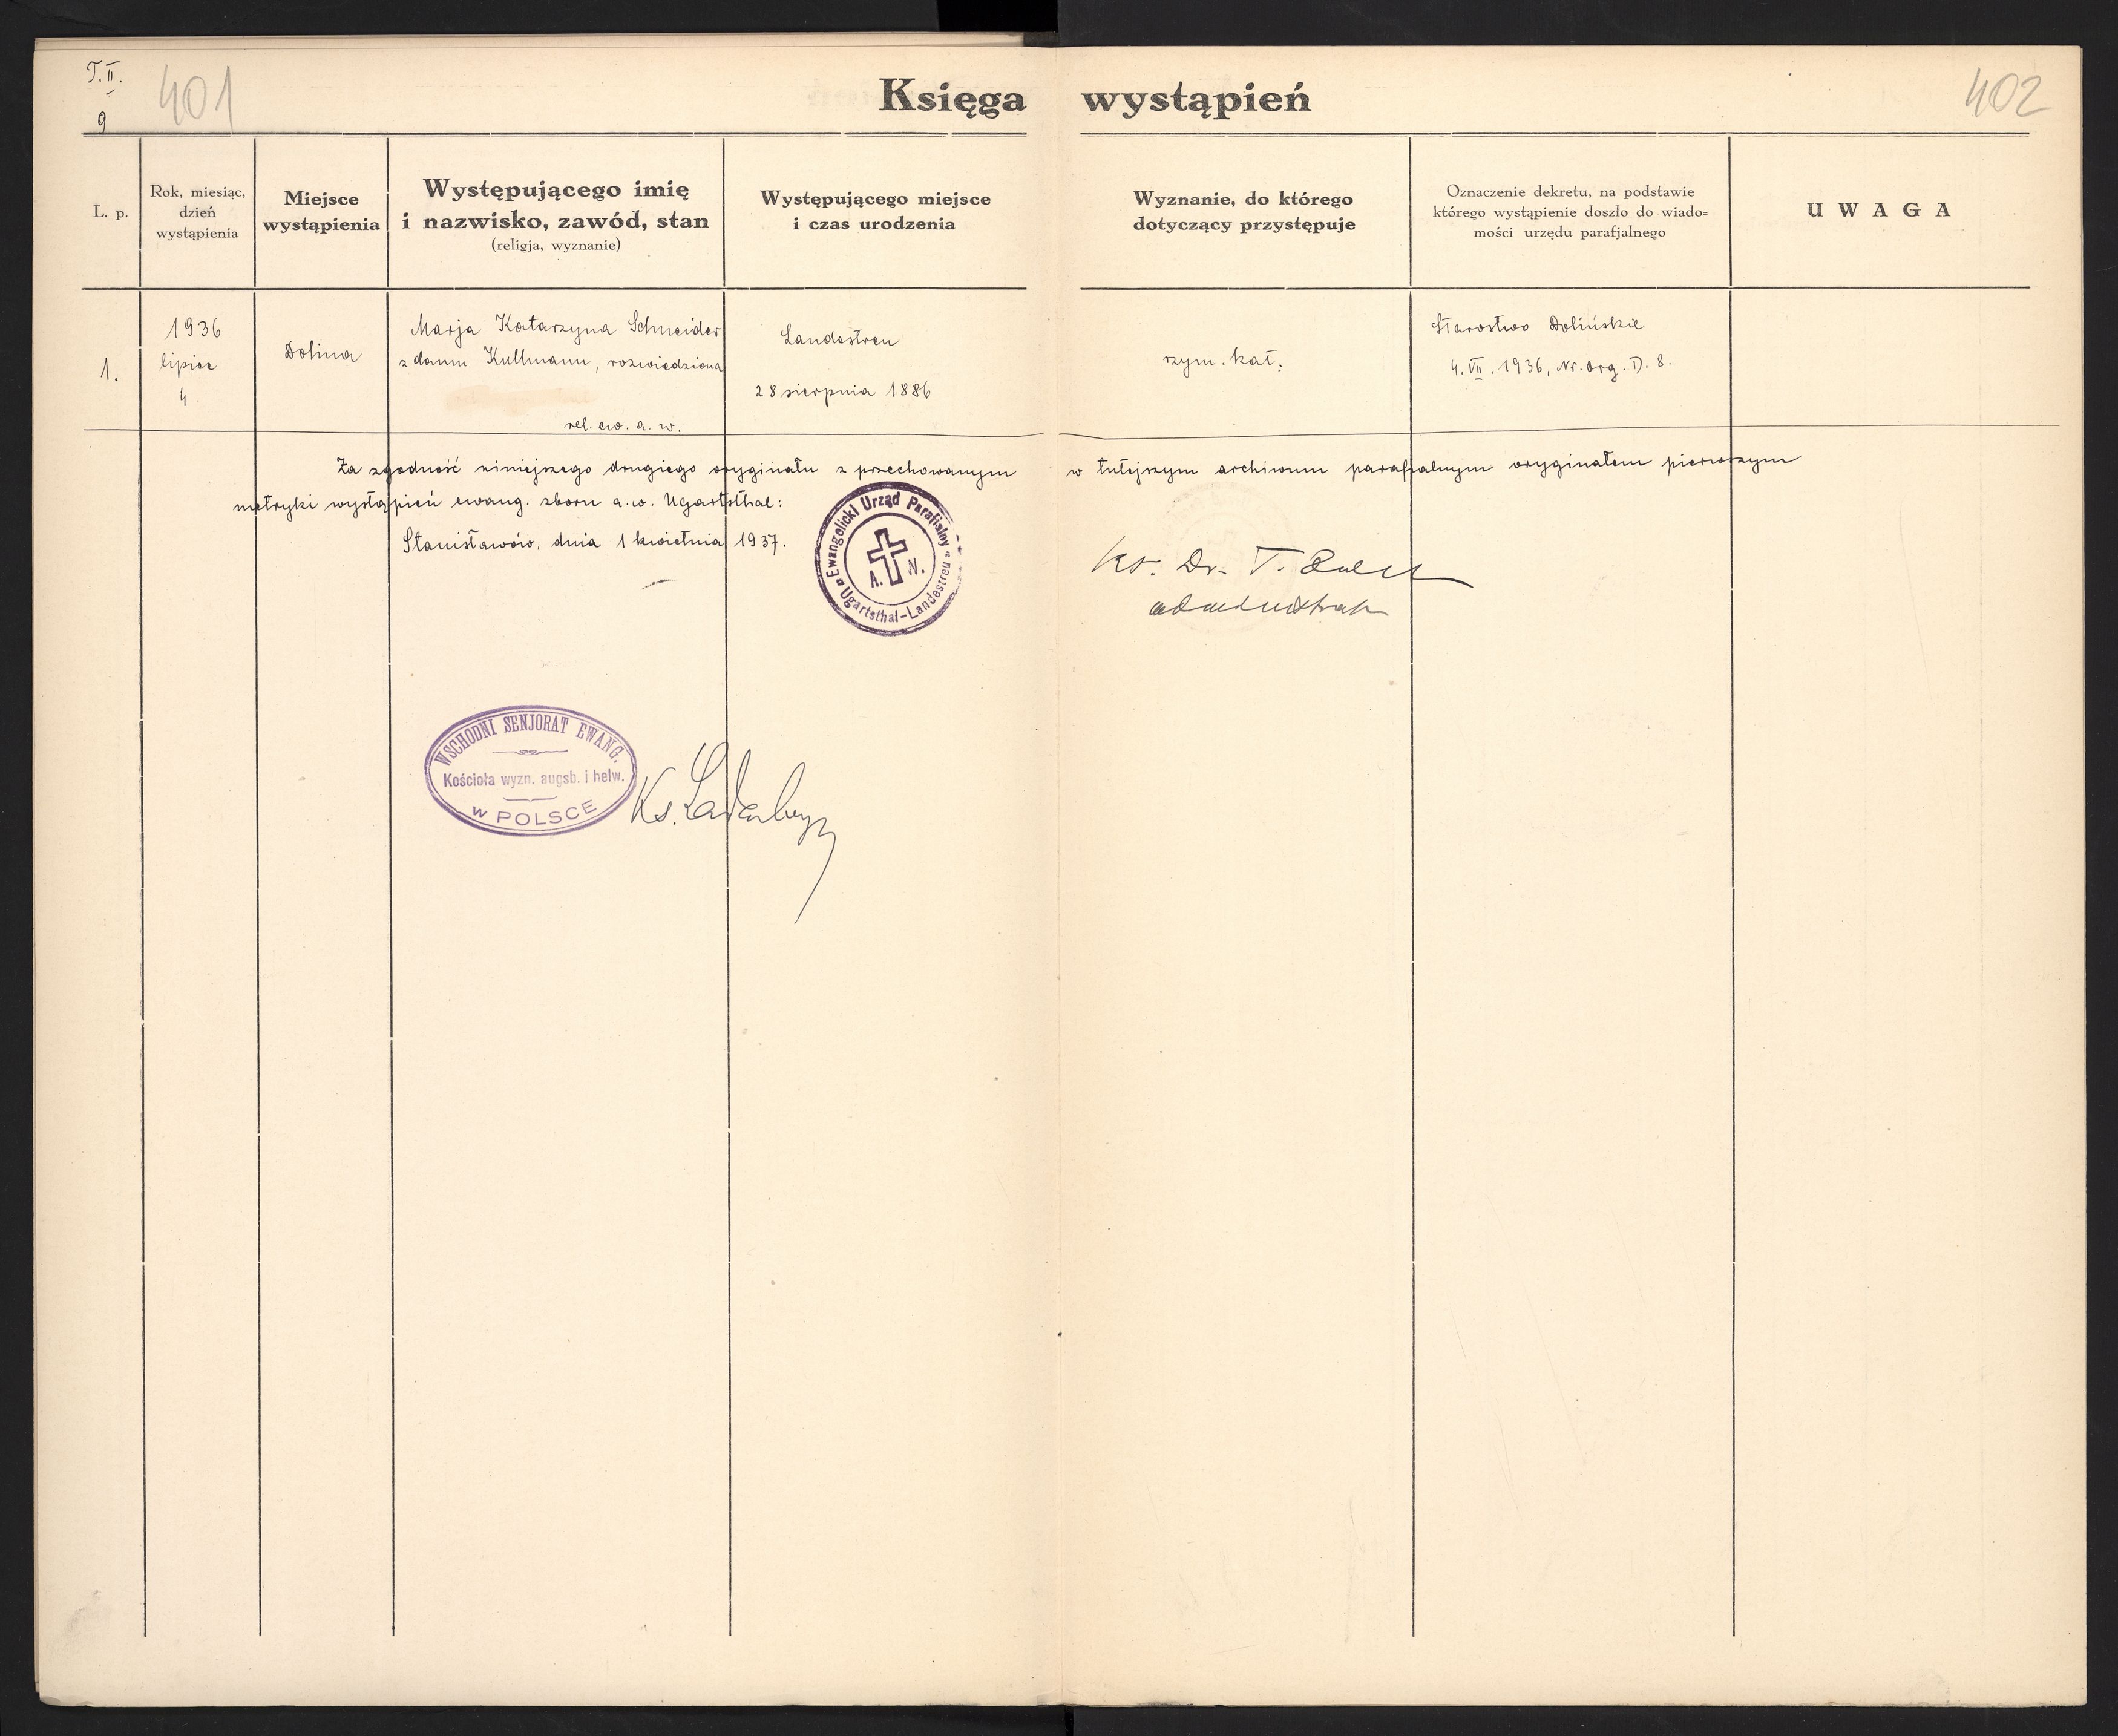 T. II.
9
401
402
Księga wystąpień
L. p.
Rok, miesiąc,
dzień
wystąpienia
Miejsce
wystąpienia
Występującego imię
i nazwisko, zawód, stan
(religja, wyznanie)
Występującego miejsce
i czas urodzenia
Wyznanie, do którego
dotyczący przystępuje
Oznaczenie dekretu, na podstawie
którego wystąpienie doszło do wiado=
mości urzędu parafjalnego
UWAGA
1.
1936
lipiec
4
Dolina
Marja Katarzyna Schneider
z domu Kullmann, rozwiedziona
rel. ew. a. w.
Landestreu
28 sierpnia 1886
rzym. kat.
Starostwo Dolińskie
4. VII. 1936, Nr. Org. D. 8.
Za zgodność niniejszego drugiego oryginału z przechowanym w tutejszym archiwum parafialnym oryginałem pierwszym
metryki wystąpień ewang. zboru a. w. Ugartsthal:
Stanisławów, dnia 1 kwietnia 1937.
Ewangelicki Urząd Parafialny
Ugartsthal-Landestreu
A. N.
Ks. Dr. T.
administrator
WSCHODNI SENJORAT EWANG.
Kościoła wyzn. augsb. i helw.
w POLSCE
Ks.